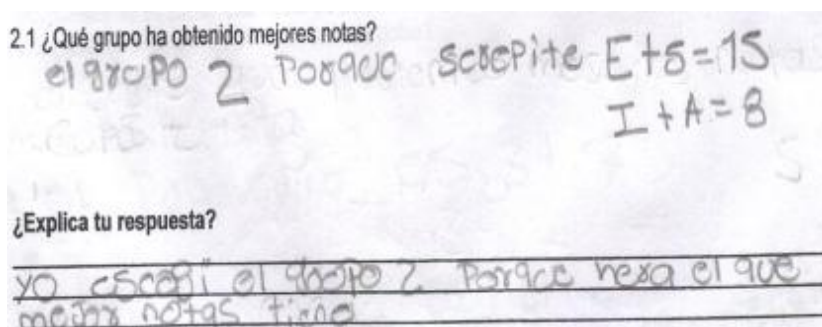 2.1 ¿Qué grupo ha obtenido mejores notas?
el grupo 2 Porque serepite E+S=15
I+A=8
¿Explica tu respuesta?
yo escogi el grupo 2 Porque hera el que
mejor notas tiene